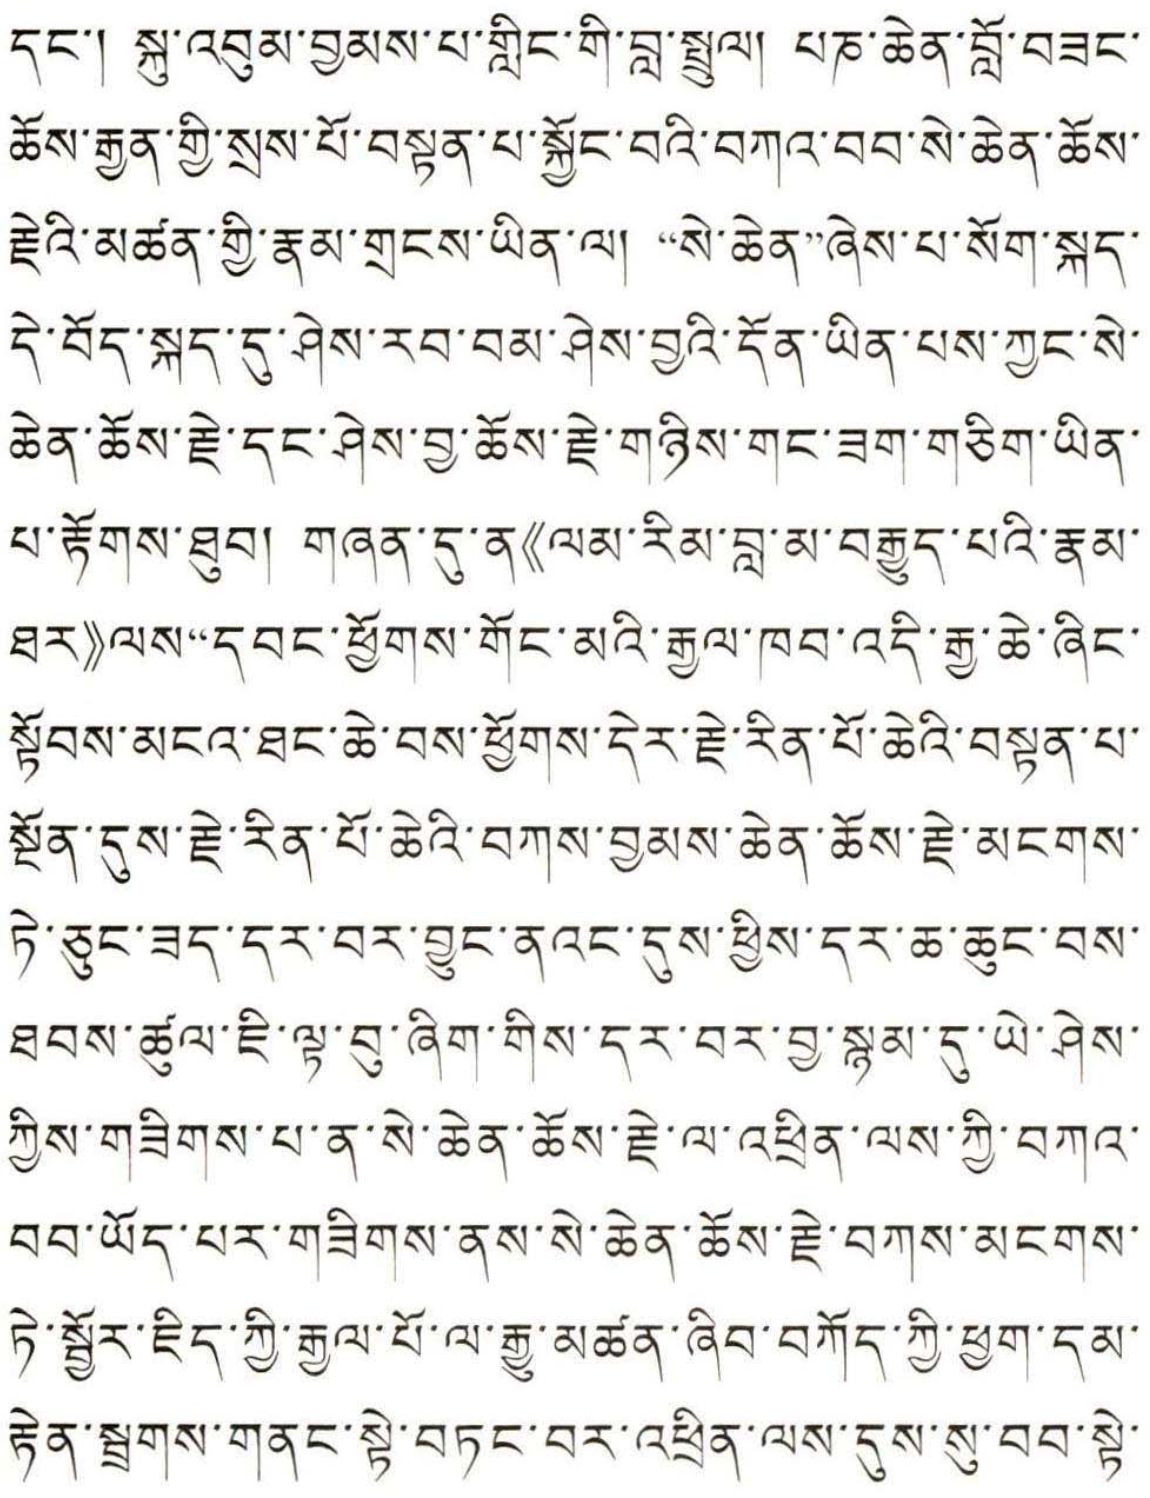 དང་། སྐུ་འབུམ་བྱམས་པ་གླིང་གི་བླ་སྤྲུལ། པཎ་ཆེན་བློ་བཟང་
ཆོས་རྒྱན་གྱི་སྲས་པོ་བསྟན་པ་སྐྱོང་བའི་བཀའ་བབ་སེ་ཆེན་ཆོས་
རྗེའི་མཚན་གྱི་རྣམ་གྲངས་ཡིན་ལ། “སེ་ཆེན”ཞེས་པ་སོག་སྐད་
དེ་བོད་སྐད་དུ་ཤེས་རབ་བམ་ཤེས་བྱའི་དོན་ཡིན་པས་ཀྱང་སེ་
ཆེན་ཆོས་རྗེ་དང་ཤེས་བྱ་ཆོས་རྗེ་གཉིས་གང་ཟག་གཅིག་ཡིན་
པ་རྟོགས་ཐུབ། གཞན་དུ་ན《ལམ་རིམ་བླ་མ་བརྒྱུད་པའི་རྣམ་
ཐར》ལས“དབང་ཕྱོགས་གོང་མའི་རྒྱལ་ཁབ་འདི་རྒྱ་ཆེ་ཞིང་
སྟོབས་མངའ་ཐང་ཆེ་བས་ཕྱོགས་དེར་རྗེ་རིན་པོ་ཆེའི་བསྟན་པ་
སྔོན་དུས་རྗེ་རིན་པོ་ཆེའི་བཀས་བྱམས་ཆེན་ཆོས་རྗེ་མངགས་
ཏེ་ཅུང་ཟད་དར་བར་བྱུང་ནའང་དུས་ཕྱིས་དར་ཆ་ཆུང་བས་
ཐབས་ཚུལ་ཇི་ལྟ་བུ་ཞིག་གིས་དར་བར་བྱ་སྙམ་དུ་ཡེ་ཤེས་
ཀྱིས་གཟིགས་པ་ན་སེ་ཆེན་ཆོས་རྗེ་ལ་འཕྲིན་ལས་ཀྱི་བཀའ་
བབ་ཡོད་པར་གཟིགས་ནས་སེ་ཆེན་ཆོས་རྗེ་བཀས་མངགས་
ཏེ་སྦྱོར་ཇིད་ཀྱི་རྒྱལ་པོ་ལ་རྒྱུ་མཚན་ཞིབ་བཀོད་ཀྱི་ཕྱག་དམ་
རྟེན་སྦྲགས་གནང་སྟེ་བཏང་བར་འཕྲིན་ལས་དུས་སུ་བབ་སྟེ་